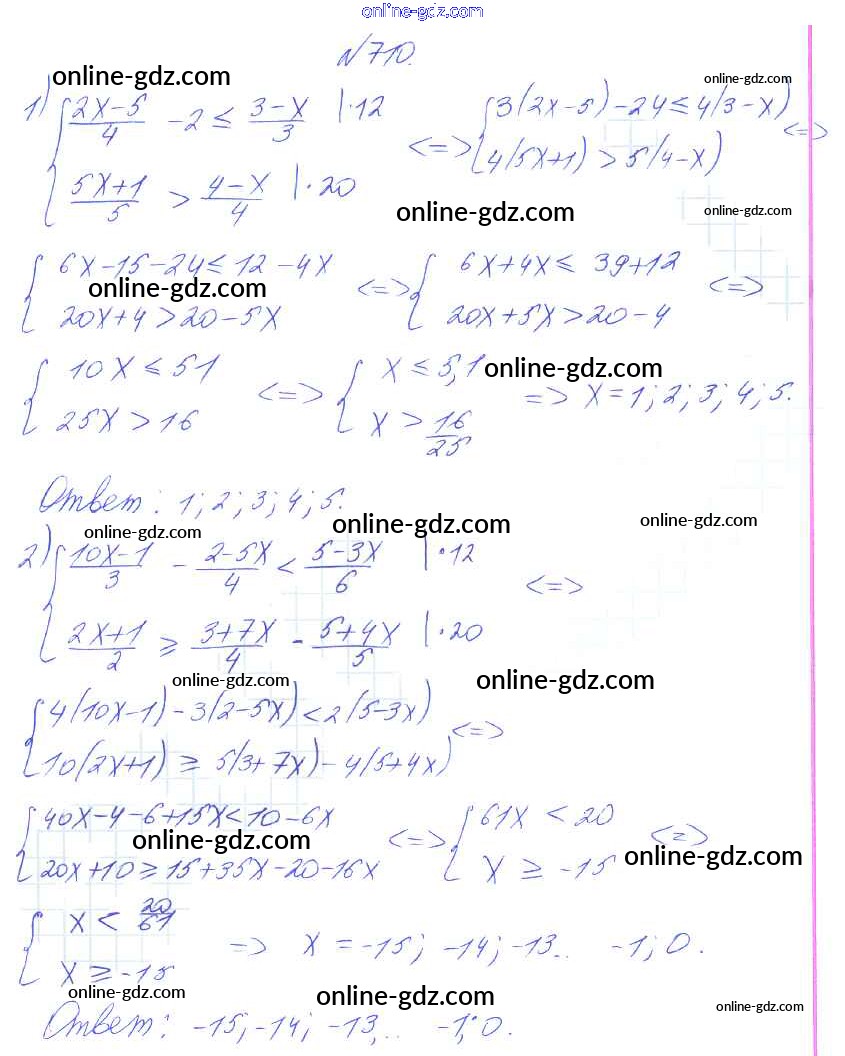 online-gdz.com
№710.
online-gdz.com online-gdz.com
1) { (2x-5)/4 - 2 ≤ (3-x)/3 |·12
{ (5x+1)/5 > (4-x)/4 |·20
<=> { 3(2x-5)-24 ≤ 4(3-x)
{ 4(5x+1) > 5(4-x) <=>
online-gdz.com online-gdz.com
{ 6x-15-24 ≤ 12-4x
{ 20x+4 > 20-5x
online-gdz.com
<=> { 6x+4x ≤ 39+12
{ 20x+5x > 20-4 <=>
{ 10x ≤ 51
{ 25x > 16
<=> { x ≤ 5,1
{ x > 16/25
online-gdz.com
=> x=1; 2; 3; 4; 5.
Ответ: 1; 2; 3; 4; 5.
online-gdz.com online-gdz.com online-gdz.com
2) { (10x-1)/3 - (2-5x)/4 < (5-3x)/6 |·12
{ (2x+1)/2 ≥ (3+7x)/4 - (5+4x)/5 |·20
<=>
online-gdz.com online-gdz.com
{ 4(10x-1)-3(2-5x)<2(5-3x)
{ 10(2x+1) ≥ 5(3+7x)-4(5+4x) <=>
{ 40x-4-6+15x<10-6x
{ 20x+10 ≥ 15+35x-20-16x
online-gdz.com
<=> { 61x < 20
{ x ≥ -15 <=>
online-gdz.com
{ x < 20/61
{ x ≥ -15
=> x = -15; -14; -13.. -1; 0.
online-gdz.com online-gdz.com online-gdz.com
Ответ: -15; -14; -13,.. -1; 0.